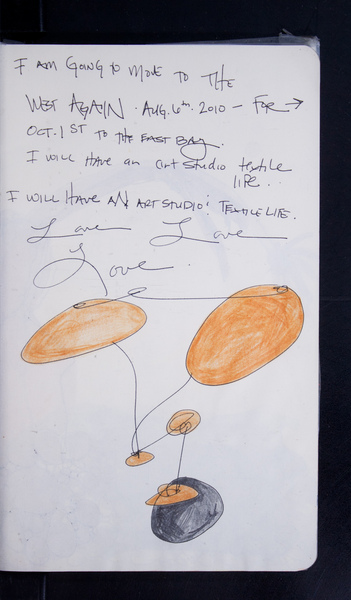 I AM GOING to MOVE TO THE
WEST AGAIN. AUG. 6th. 2010 — FOR →
OCT. 1ST TO THE EAST BAY.
I WILL HAVE an art studio textile
LIFE..
I WILL HAVE AN ART STUDIO: TEXTILE LIFE.
Love Love
Love.